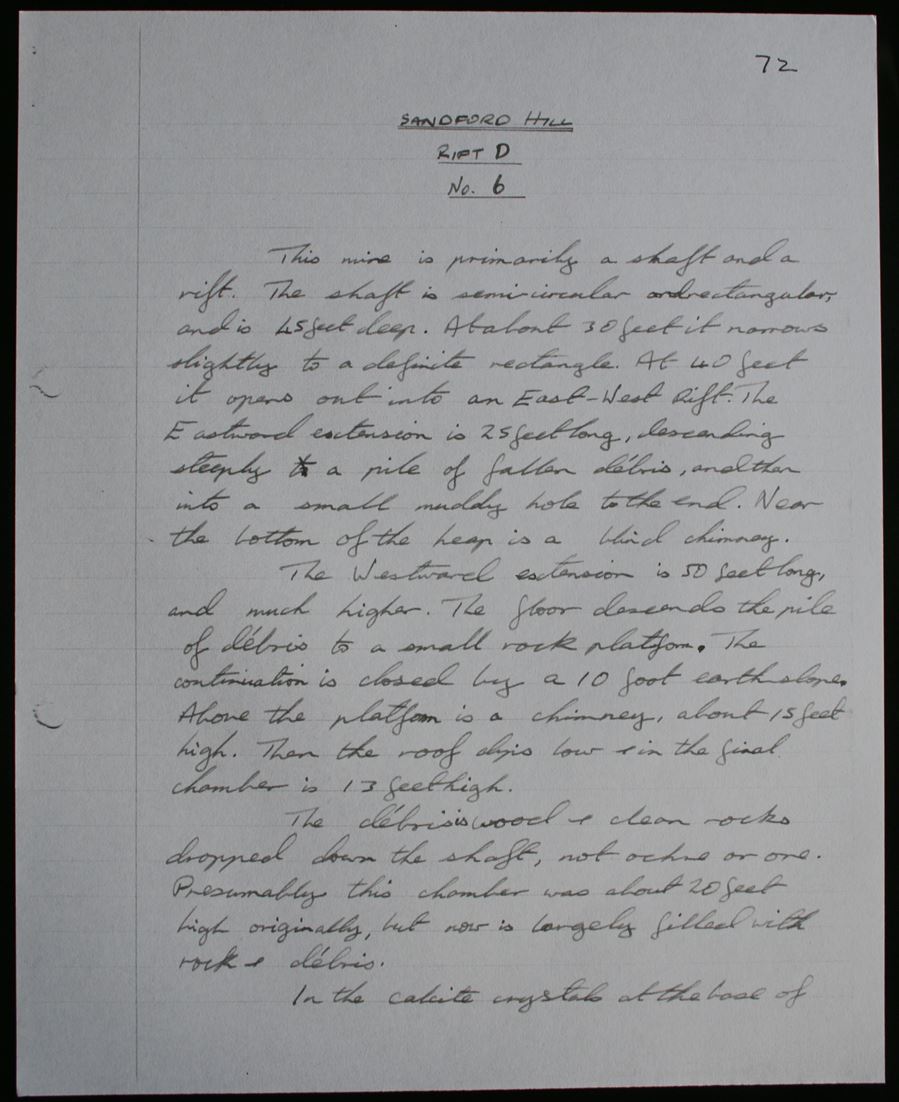 72
SANDFORD HILL
RIFT D
No. 6
This mine is primarily a shaft and a
rift. The shaft is semi-circular and rectangular,
and is 45 feet deep. At about 30 feet it narrows
slightly to a definite rectangle. At 40 feet
it opens out into an East-West Rift. The
Eastward extension is 25 feet long, descending
steeply to a pile of fallen débris, and then
into a small muddy hole to the end. Near
the bottom of the heap is a blind chimney.
The Westward extension is 50 feet long,
and much higher. The floor descends the pile
of débris to a small rock platfom. The
continuation is closed by a 10 foot earth slope.
Above the platfom is a chimney, about 15 feet
high. Then the roof dips low & in the final
chamber is 13 feet high.
The débris is wood & clean rocks
dropped down the shaft, not ochre or ore.
Presumably this chamber was about 20 feet
high originally, but now is largely filled with
rock & débris.
In the calcite crystals at the base of